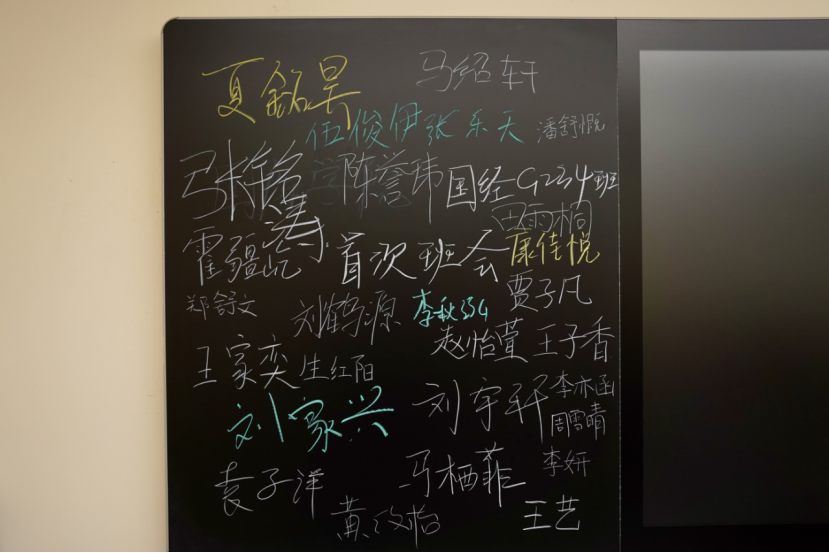 夏銘昊 马绍轩
伍俊伊 张乐天 潘舒慨
张铭涛 陈誉玮 国经G234班
田雨桐
霍疆屹 首次班会 康佳悦
郑舒文 刘鹤源 李秋 贾子凡
赵怡萱 王子香
王家奕 生红阳
刘家兴 刘宇轩 李亦函
周雪晴
袁子洋 马栖菲 李妍
黄 怡 王艺